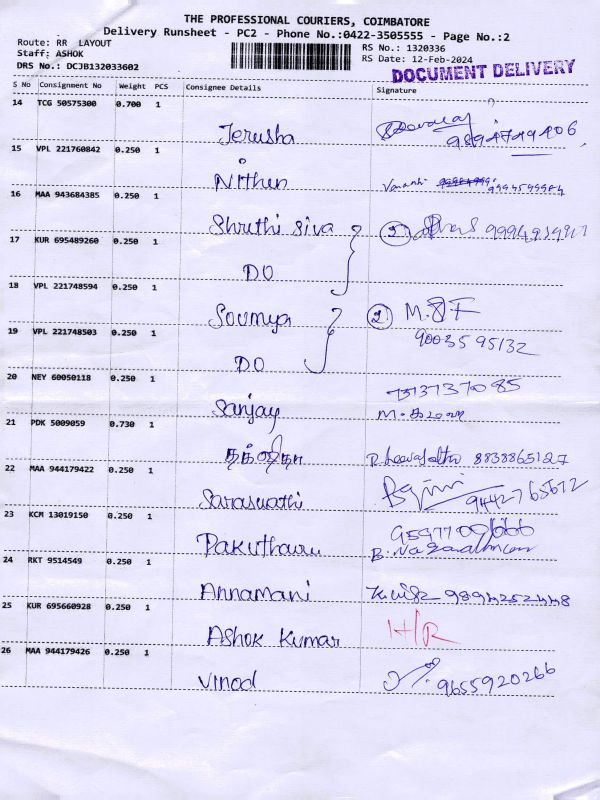 THE PROFESSIONAL COURIERS, COIMBATORE
Delivery Runsheet - PC2 - Phone No.:0422-3505555 - Page No.:2
Route: RR LAYOUT
Staff: ASHOK
DRS No.: DCJB132033602
RS No.: 1320336
RS Date: 12-Feb-2024
DOCUMENT DELIVERY
S No Consignment No Weight PCS Consignee Details Signature
14 TCG 50575300 0.700 1
Jerusha
15 VPL 221760842 0.250 1
Nithen
16 MAA 943684385 0.250 1
Shruthi siva
17 KUR 695489260 0.250 1
DO
18 VPL 221748594 0.250 1
Soumya 2 M.
19 VPL 221748503 0.250 1
9003595132
DO
20 NEY 60050118 0.250 1
7373737085
Sanjay
21 PDK 5009059 0.730 1
8838865127
22 MAA 944179422 0.250 1
Saraswathi 9442765672
23 KCM 13019150 0.250 1
B.
24 RKT 9514549 0.250 1
Annamani 9894252448
25 KUR 695660928 0.250 1
Ashok Kumar H/R
26 MAA 944179426 0.250 1
Vinod 9655920266